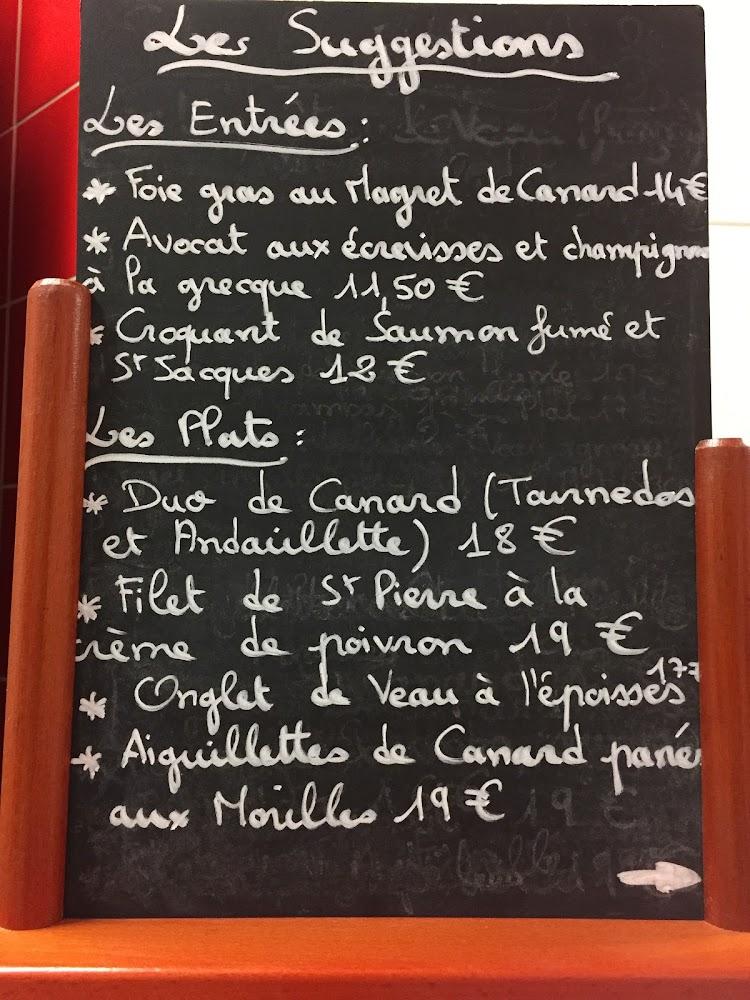 Les Suggestions
Les Entrées :
* Foie gras au Magret de Canard 14€
* Avocat aux écrevisses et champignon
à la grecque 11,50 €
* Croquant de Saumon fumé et
St Jacques 12 €
Les Plats :
* Duo de Canard (Tournedos
et Andouillette) 18 €
* Filet de St Pierre à la
crème de poivron 19 €
* Onglet de Veau à l'époisses
* Aiguillettes de Canard pané
aux Morilles 19 €